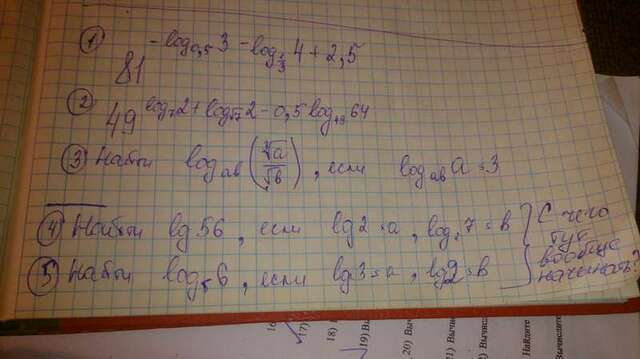 ① 81^(-log_{0,5} 3 - log_{1/3} 4 + 2,5)
② 49^(log_7 2 + log_{√7} 2 - 0,5 log_{49} 64)
③ Найти log_{ab} (∛a/√b), если log_{ab} a = 3
④ Найти lg 56, если lg 2 = a, log_2 7 = b } С чего
тут
вообще
⑤ Найти log_5 6, если lg 3 = a, lg 2 = b } начинать?
16
17)
18) В
19) Вы
20) Выч
21) Вычис
22) Вычисл
Найдите